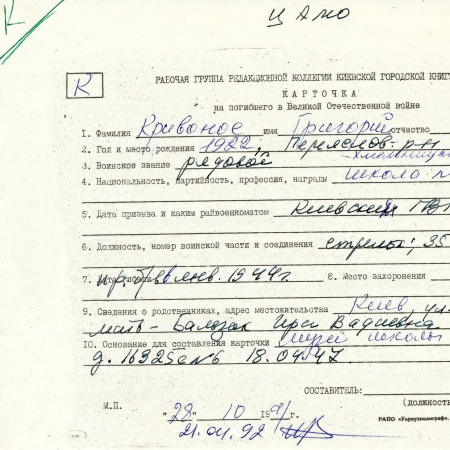 ЦАМО
К
К
РАБОЧАЯ ГРУППА РЕДАКЦИОННОЙ КОЛЛЕГИИ КИЕВСКОЙ ГОРОДСКОЙ КНИГ
КАРТОЧКА
на погибшего в Великой Отечественной войне
1. Фамилия Кривонос имя Григорий отчество
2. Год и место рождения 1922, Переяслов- р-н
3. Воинское звание рядовой -Хмельницк
4. Национальность, партийность, профессия, награды школа
5. Дата призыва и каким райвоенкоматом Киевским ГВ
6. Должность, номер воинской части и соединения стрелок; 35
7. пр. б/в янв. 1944г. 8. Место захоронения
9. Сведения о родственниках, адрес местожительства Киев ул.
мать - Бальзак Вадиевна
10. Основание для составления карточки музей школы
д. 18.04.47
СОСТАВИТЕЛЬ:
(должность
М.П. "28" 10 1991г.
21.04.92
РАПО «Укрвузполиграф».